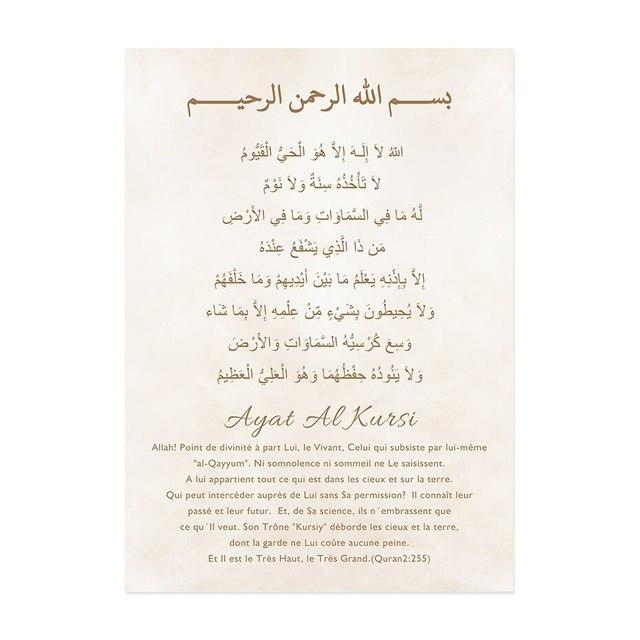 بســـم الله الرحمن الرحيـــم
اللّهُ لاَ إِلَـهَ إِلاَّ هُوَ الْحَيُّ الْقَيُّومُ
لاَ تَأْخُذُهُ سِنَةٌ وَلاَ نَوْمٌ
لَّهُ مَا فِي السَّمَاوَاتِ وَمَا فِي الأَرْضِ
مَن ذَا الَّذِي يَشْفَعُ عِنْدَهُ
إِلاَّ بِإِذْنِهِ يَعْلَمُ مَا بَيْنَ أَيْدِيهِمْ وَمَا خَلْفَهُمْ
وَلاَ يُحِيطُونَ بِشَيْءٍ مِّنْ عِلْمِهِ إِلاَّ بِمَا شَاء
وَسِعَ كُرْسِيُّهُ السَّمَاوَاتِ وَالأَرْضَ
وَلاَ يَئُودُهُ حِفْظُهُمَا وَهُوَ الْعَلِيُّ الْعَظِيمُ
Ayat Al Kursi
Allah! Point de divinité à part Lui, le Vivant, Celui qui subsiste par lui-même
"al-Qayyum". Ni somnolence ni sommeil ne Le saisissent.
A lui appartient tout ce qui est dans les cieux et sur la terre.
Qui peut intercéder auprès de Lui sans Sa permission? Il connaît leur
passé et leur futur. Et, de Sa science, ils n´embrassent que
ce qu´Il veut. Son Trône "Kursiy" déborde les cieux et la terre,
dont la garde ne Lui coûte aucune peine.
Et Il est le Très Haut, le Très Grand.(Quran2:255)